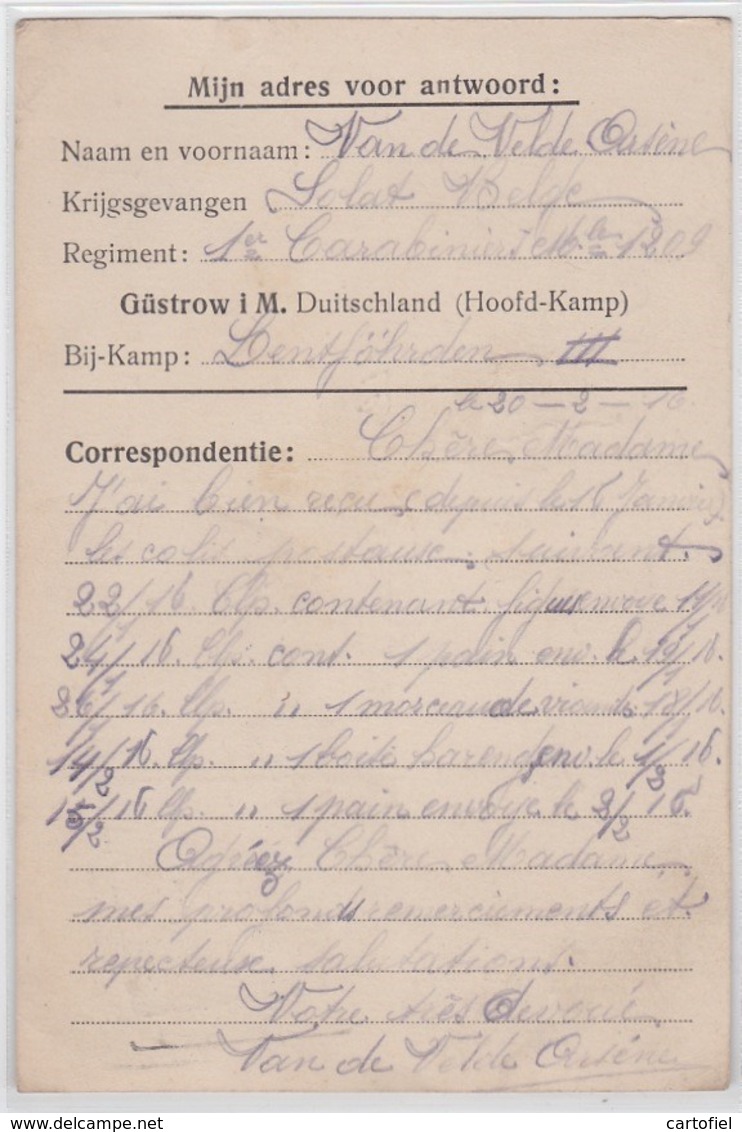 Mijn adres voor antwoord:
Naam en voornaam: Van de Velde Arsène
Krijgsgevangen Solat Belge
Regiment: 1er Carabiniers Mle 1209
Güstrow i M. Duitschland (Hoofd-Kamp)
Bij-Kamp: Lentföhrden III
le 20-2-16
Correspondentie: Chère Madame
J'ai bien reçu (depuis le 16 Janvier)
les colis postaux suivant.
22/1 16. Clp. contenant figues envoyé
24/1 16. Clp. cont. 1 pain env. le
26/1 16. Clp. " 1 morceau de viande 18/1 16.
14/2 16. Clp. " 1 boite harengs env. le 1/2 16.
15/2 16 Clp. " 1 pain envoyé le 2/2 16.
Agréez Chère Madame,
mes profonds remerciements et
repecteux salutations.
Votre très dévoué
Van de Velde Arsène
cartofiel